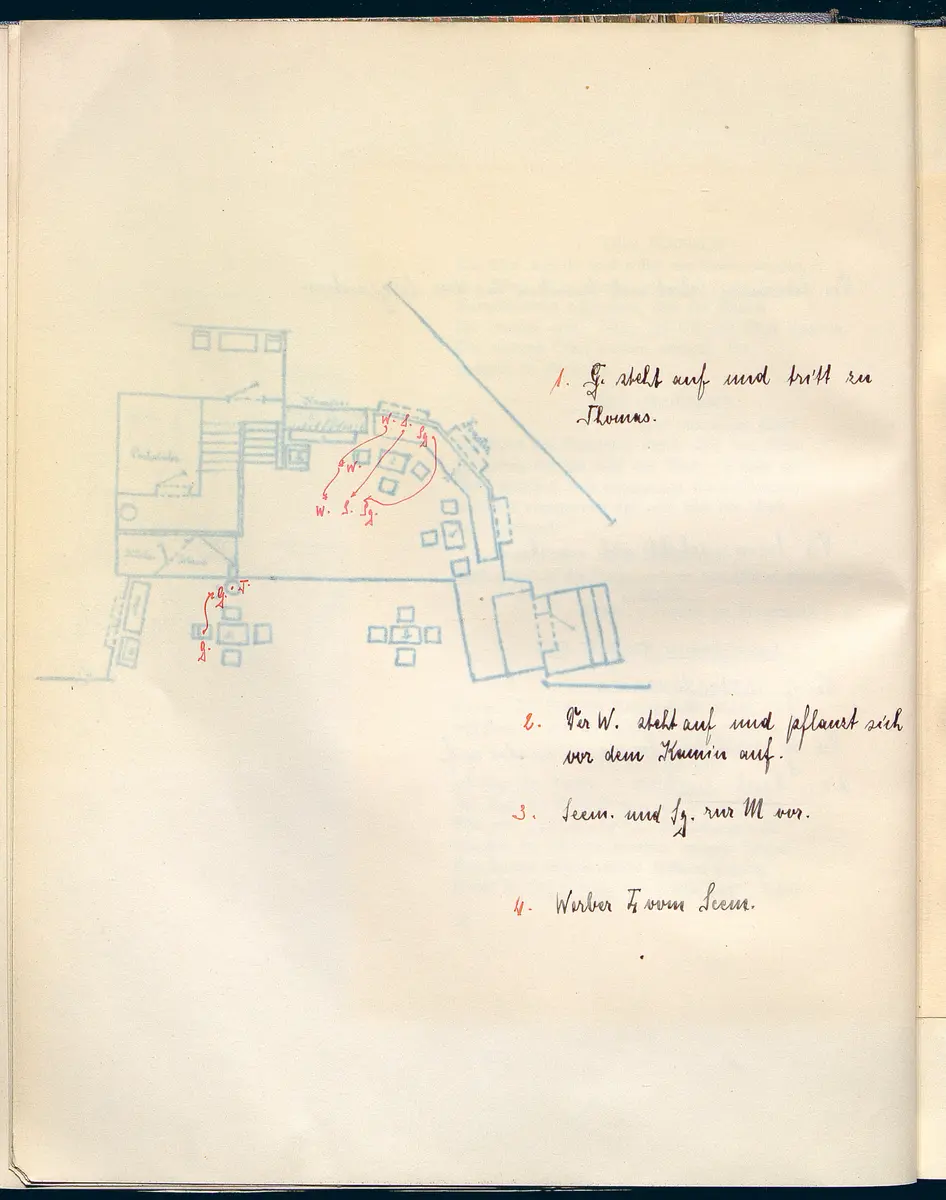 W. S. Sg.
W.
W. S. Sg.
G. T.
G.
Fenster
1. G. steht auf und tritt zu
Thomas.
2. Der W. steht auf und pflanzt sich
vor dem Kamin auf.
3. Seem. und Sg. zur M vor.
4. Werber vom Seem.